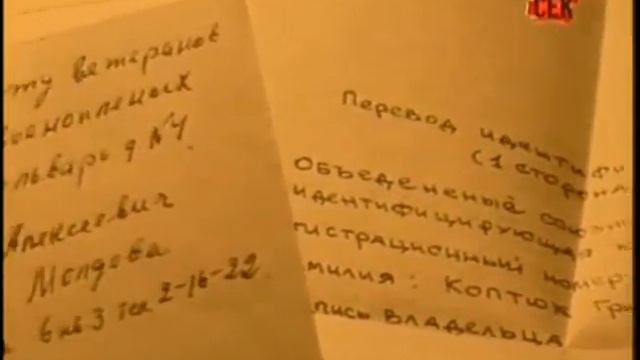 СЕК
ту ветеранов
военопленых
львар д №4.
Алексеевич
Молдова
6 кв 3 тел 2-16-22.
Перевод идентифи
(1 сторона
Объеденёный союзн
идентифицирующая к
гистрационный номер
милия: Коптюх Гри
пись владельца